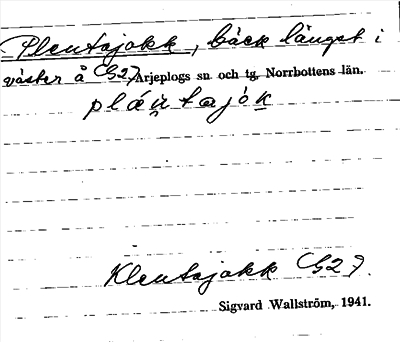 Plentajokk, bäck längst i
väster å G27 Arjeplogs sn. och tg. Norrbottens län.
pláṷtajǻk̲
Klentajakk G27.
Sigvard Wallström, 1941.